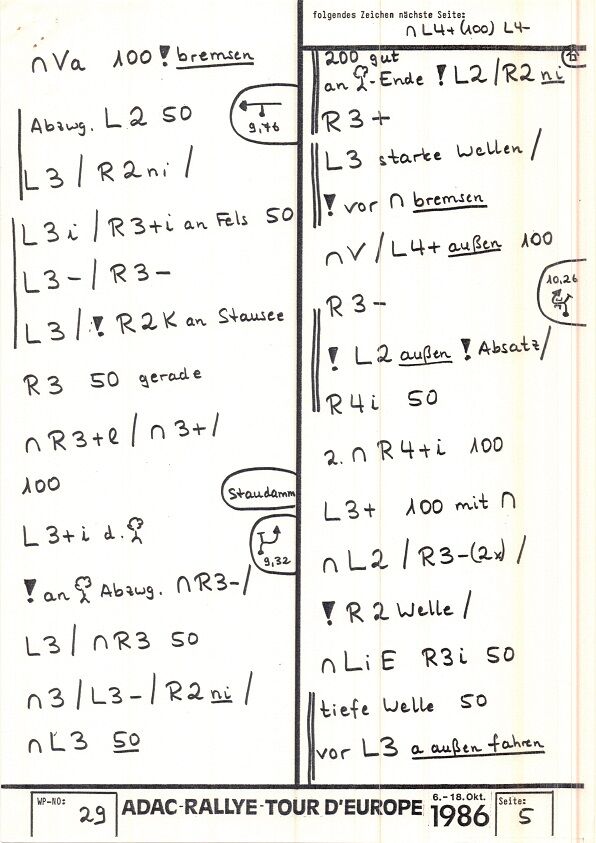 folgendes Zeichen nächste Seite:
∩ L4+ (100) L4-
∩Va 100 ! bremsen
Abzwg. L2 50
9,76
L3 / R2ni /
L3i / R3+i an Fels 50
L3- / R3-
L3 / ! R2K an Stausee
R3 50 gerade
∩ R3+e / ∩ 3+ /
100
Staudamm
L3+i d.
9,32
! an Abzwg. ∩R3- /
L3 / ∩R3 50
∩3 / L3- / R2 ni /
∩L3 50
200 gut
an -Ende ! L2 / R2 ni
R3+
L3 starke Wellen /
! vor ∩ bremsen
∩V / L4+ außen 100
10,26
R3-
! L2 außen ! Absatz /
R4i 50
2. ∩ R4+i 100
L3+ 100 mit ∩
∩L2 / R3-(2x) /
! R2 Welle /
∩LiE R3i 50
tiefe Welle 50
vor L3 a außen fahren
WP-NO: 29
ADAC-RALLYE-TOUR D'EUROPE
6.-18. Okt.
1986
Seite: 5